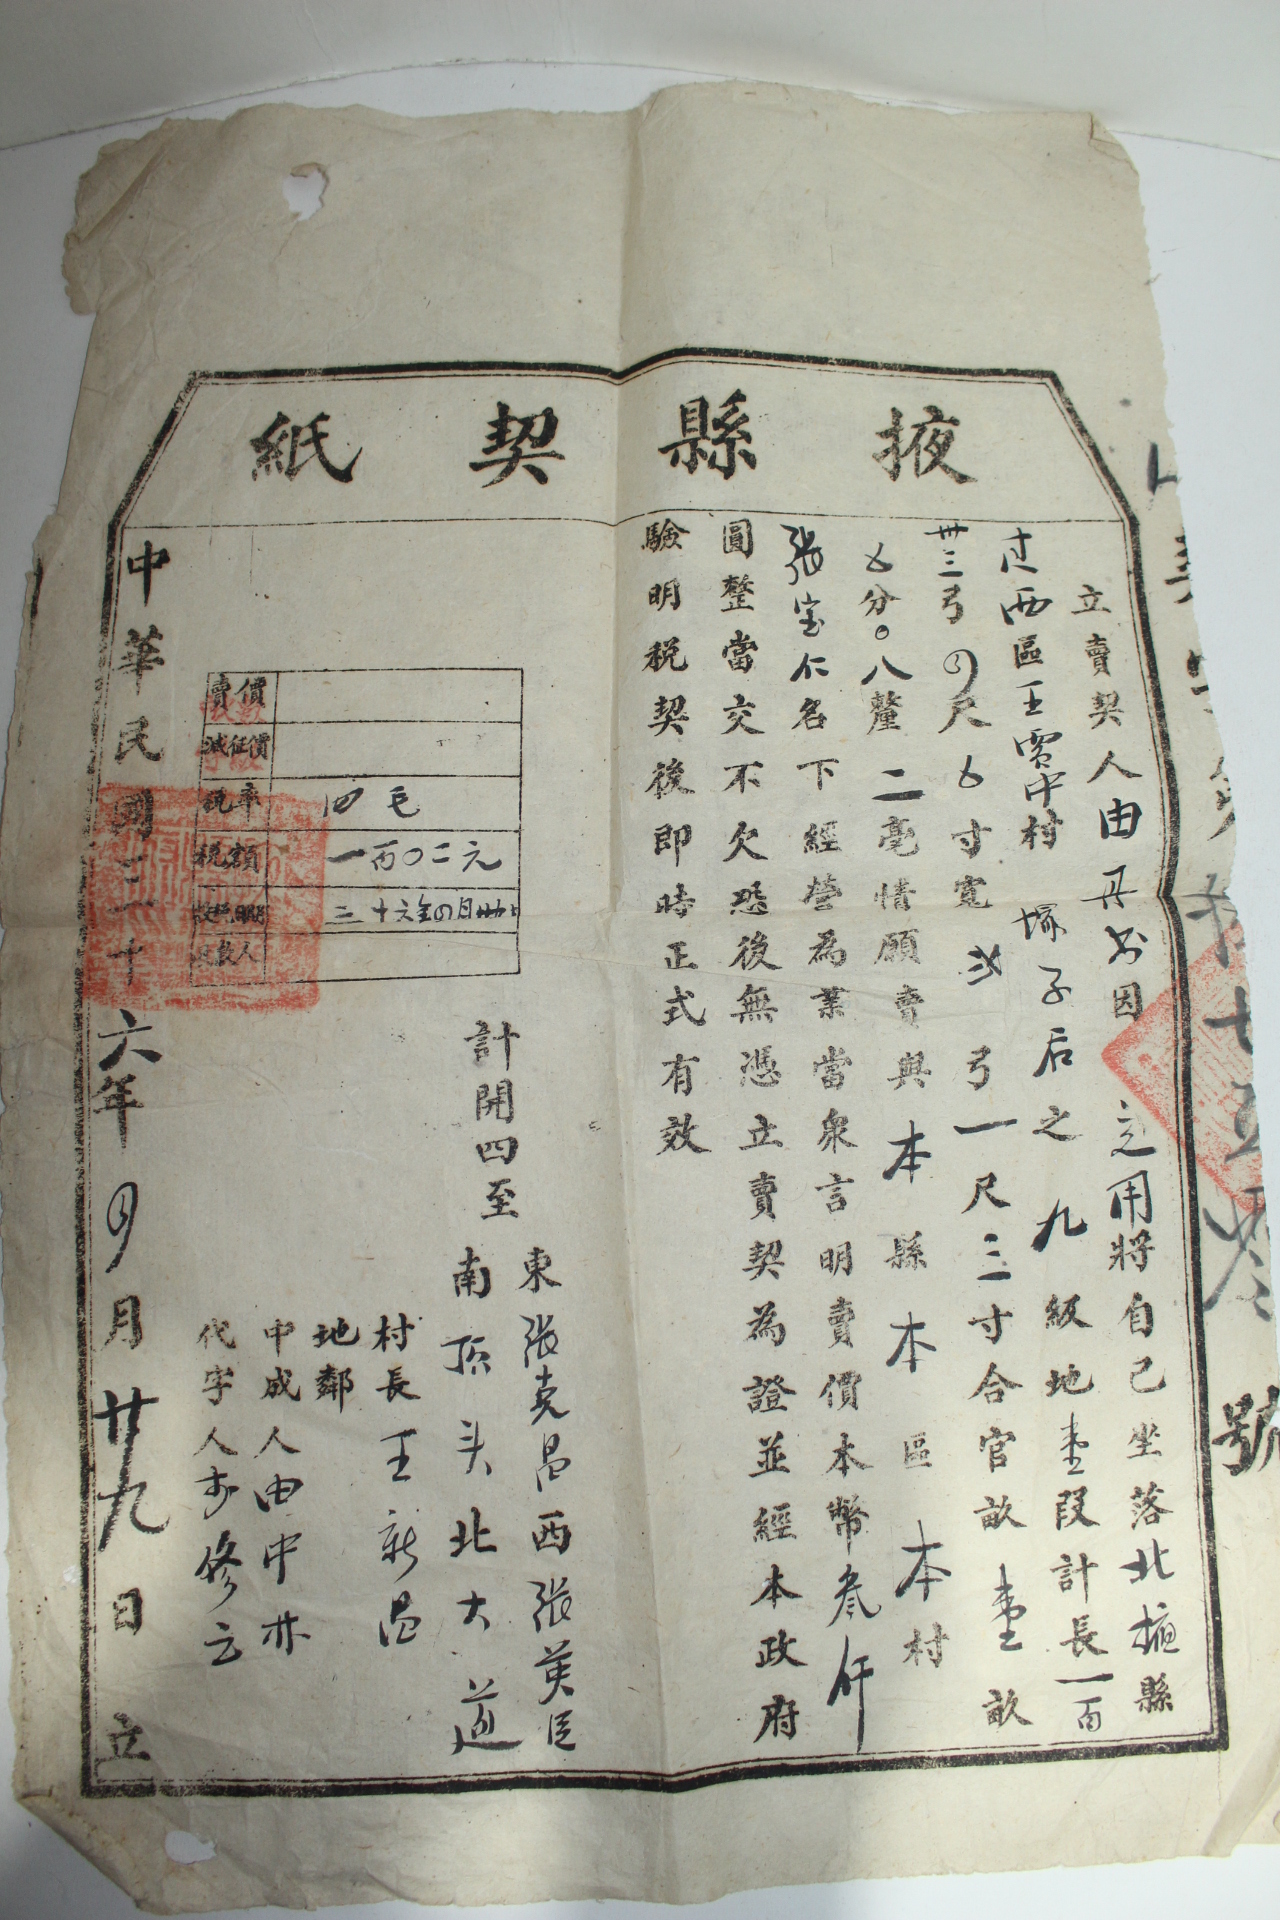 掖縣契紙
立賣契人由丹書因 之用將自己坐落北掖縣
过西區王賈中村 塚子后之 九級地壹段計長一百
卅三弓四尺五寸寬 弐弓一尺三寸合官畝壹畝
五分〇八釐二毫情願賣與本縣本區本村
張宝仁名下經營為業當衆言明賣價本幣叁仟
圓整當交不欠恐後無憑立賣契為證並經本政府
驗明税契後即時正式有效
計開四至
東張克昌西張英臣
南頂头北大道
賣價
減征價
税率 四毛
税額 一百〇二元
三十六年四月卅
收款人
村長王新昌
地鄰
中成人由中林
代字人 修云
中華民國三十六年四月廿九日立
號